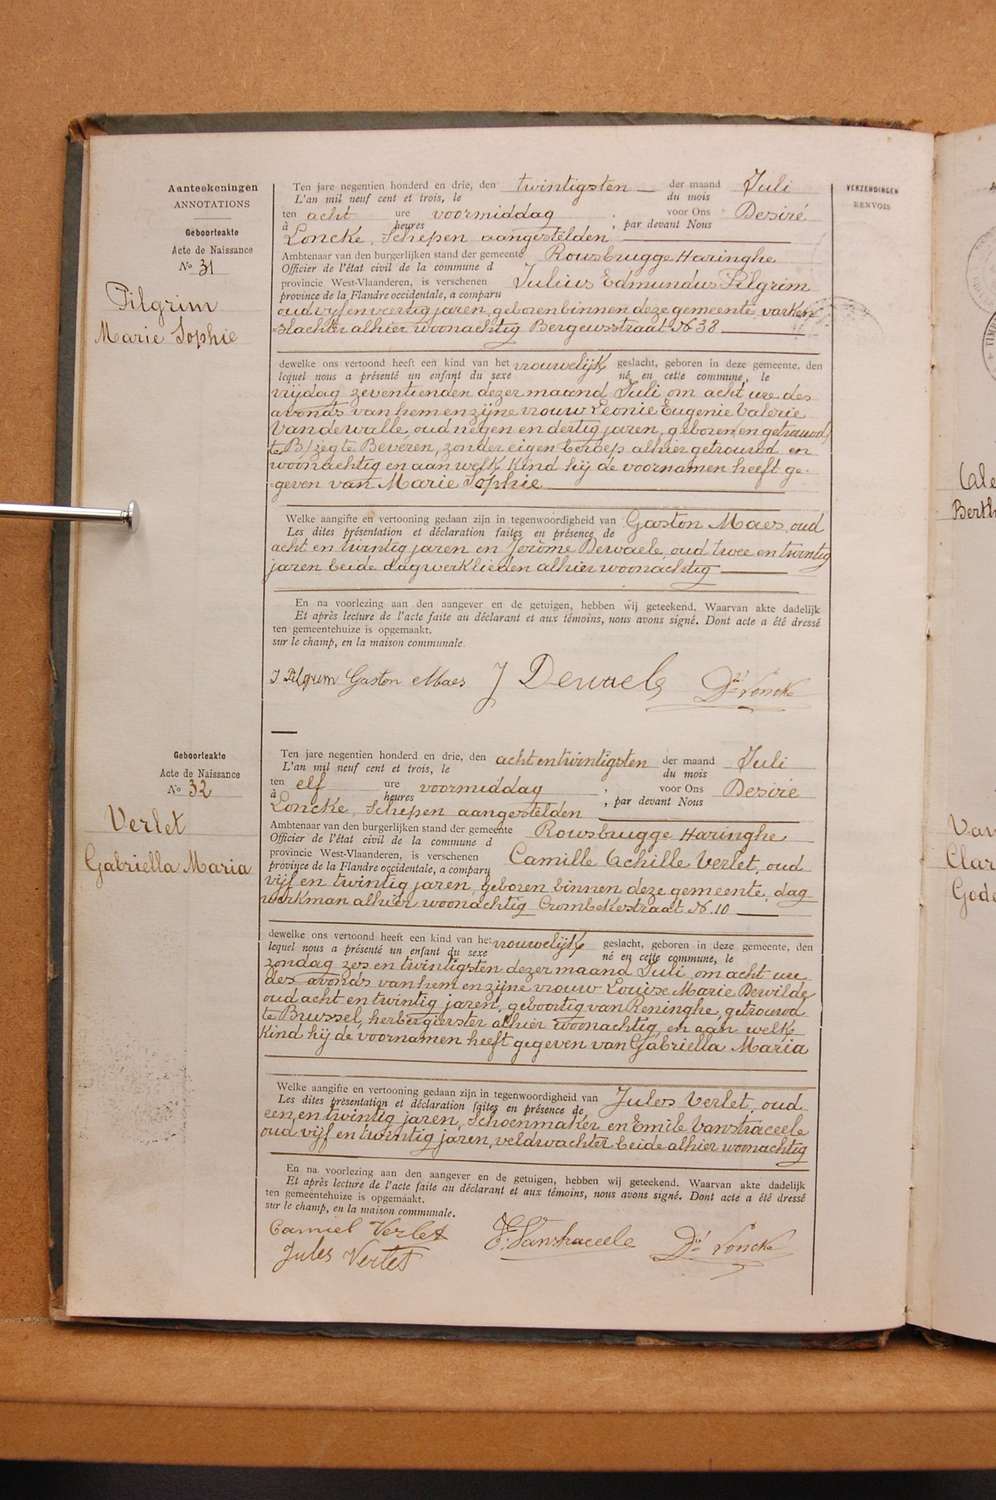 Aanteekeningen
ANNOTATIONS
Geboorteakte
Acte de Naissance
No 31
Pilgrim
Marie Sophie
Ten jare negentien honderd en drie, den twintigsten der maand Juli
L'an mil neuf cent et trois, le du mois
ten acht ure voormiddag, voor Ons Desiré
à heures , par devant Nous
Loncke, Schepen aangestelden
Ambtenaar van den burgerlijken stand der gemeente Rousbrugge Haringhe
Officier de l'état civil de la commune d
provincie West-Vlaanderen, is verschenen Julius Edmundus Pilgrim
province de la Flandre occidentale, a comparu
oud vijf en veertig jaren, geboren binnen deze gemeente, varken
slachter alhier woonachtig Bergenstraat No 38
dewelke ons vertoond heeft een kind van het vrouwelijk geslacht, geboren in deze gemeente, den
lequel nous a présenté un enfant du sexe né en cette commune, le
vrijdag zeventienden dezer maand Juli om acht ure des
avonds van hem en zijne vrouw Leonie Eugenie Valerie
Vandewalle, oud negen en dertig jaren, geboren en getrouwd
te Beveren, zonder eigen beroep alhier getrouwd en
woonachtig en aan welk kind hij de voornamen heeft ge-
geven van Marie Sophie
Welke aangifte en vertooning gedaan zijn in tegenwoordigheid van Gaston Maes, oud
Les dites présentation et déclaration faites en présence de
acht en twintig jaren en Jerôme Dewaele, oud twee en twintig
jaren beide dagwerklieden alhier woonachtig
En na voorlezing aan den aangever en de getuigen, hebben wij geteekend. Waarvan akte dadelijk
Et après lecture de l'acte faite au déclarant et aux témoins, nous avons signé. Dont acte a été dressé
ten gemeentehuize is opgemaakt.
sur le champ, en la maison communale.
J Pilgrim Gaston Maes J Dewaele Dré Loncke
VERZENDINGEN
RENVOIS
Geboorteakte
Acte de Naissance
No 32
Verlet
Gabriella Maria
Ten jare negentien honderd en drie, den acht en twintigsten der maand Juli
L'an mil neuf cent et trois, le du mois
ten elf ure voormiddag, voor Ons Desiré
à heures , par devant Nous
Loncke, Schepen aangestelden
Ambtenaar van den burgerlijken stand der gemeente Rousbrugge Haringhe
Officier de l'état civil de la commune d
provincie West-Vlaanderen, is verschenen Camille Achille Verlet, oud
province de la Flandre occidentale, a comparu
vijf en twintig jaren, geboren binnen deze gemeente, dag
werkman alhier woonachtig Crombekestraat No 10
dewelke ons vertoond heeft een kind van het vrouwelijk geslacht, geboren in deze gemeente, den
lequel nous a présenté un enfant du sexe né en cette commune, le
zondag zes en twintigsten dezer maand Juli, om acht ure
des avonds van hem en zijne vrouw Louise Marie Dewilde
oud acht en twintig jaren, geboortig van Reninghe, getrouwd
te Brussel, herbergierster alhier woonachtig, en aan welk
kind hij de voornamen heeft gegeven van Gabriella Maria
Welke aangifte en vertooning gedaan zijn in tegenwoordigheid van Jules Verlet, oud
Les dites présentation et déclaration faites en présence de
een en twintig jaren, Schoenmaker en Emile Vanstraceele
oud vijf en twintig jaren, veldwachter beide alhier woonachtig
En na voorlezing aan den aangever en de getuigen, hebben wij geteekend. Waarvan akte dadelijk
Et après lecture de l'acte faite au déclarant et aux témoins, nous avons signé. Dont acte a été dressé
ten gemeentehuize is opgemaakt.
sur le champ, en la maison communale.
Camiel Verlet E. Vanstraceele Dré Loncke
Jules Verlet
Berth
Van
Clar
Gode